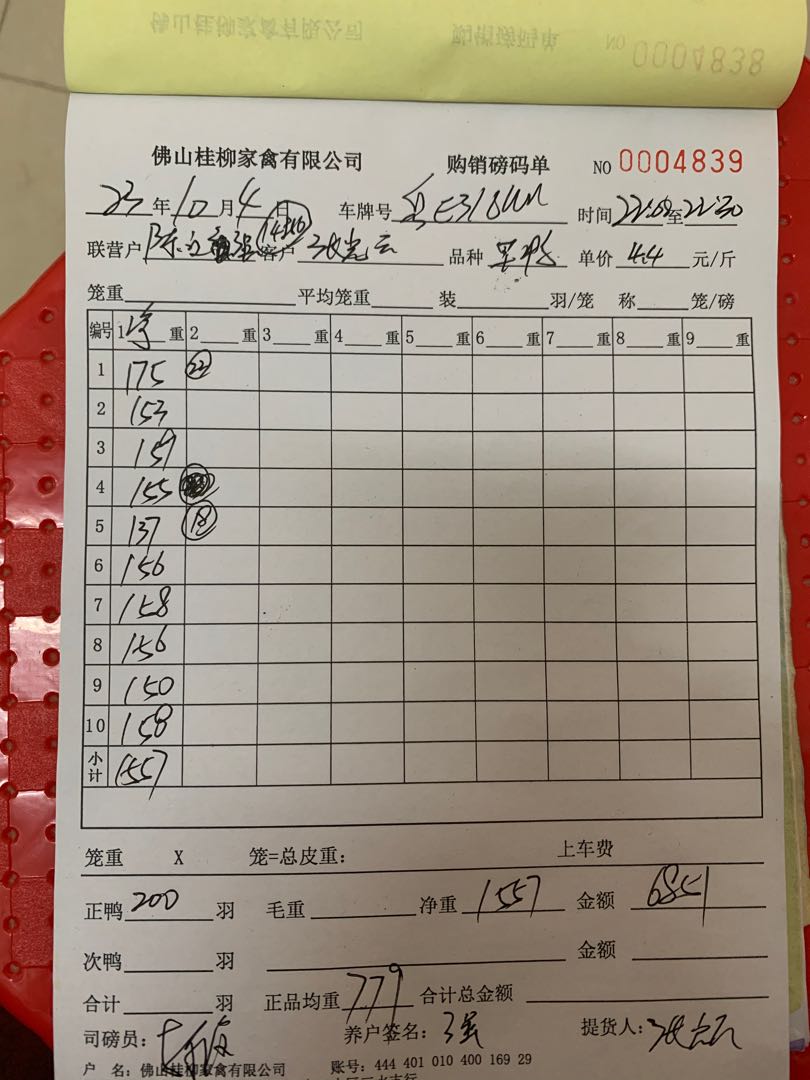 佛山桂柳家禽有限公司 购销磅码单 NO 0004838
佛山桂柳家禽有限公司 购销磅码单 NO 0004839
23年10月4日 车牌号 时间22:09至22:30
联营户 陈 客户 张 云 品种 单价 4.4 元/斤
笼重 平均笼重 装 羽/笼 称 笼/磅
编号 1净重 2 重 3 重 4 重 5 重 6 重 7 重 8 重 9 重
1 175 22
2 153
3 159
4 155
5 137 18
6 156
7 158
8 156
9 150
10 158
小计 1557
笼重 X 笼=总皮重: 上车费
正鸭 200 羽 毛重 净重 1557 金额 6851
次鸭 羽 金额
合计 羽 正品均重 779 合计总金额
司磅员: 养户签名: 强 提货人: 张 云
户 名: 佛山桂柳家禽有限公司 账号: 444 401 010 400 169 29